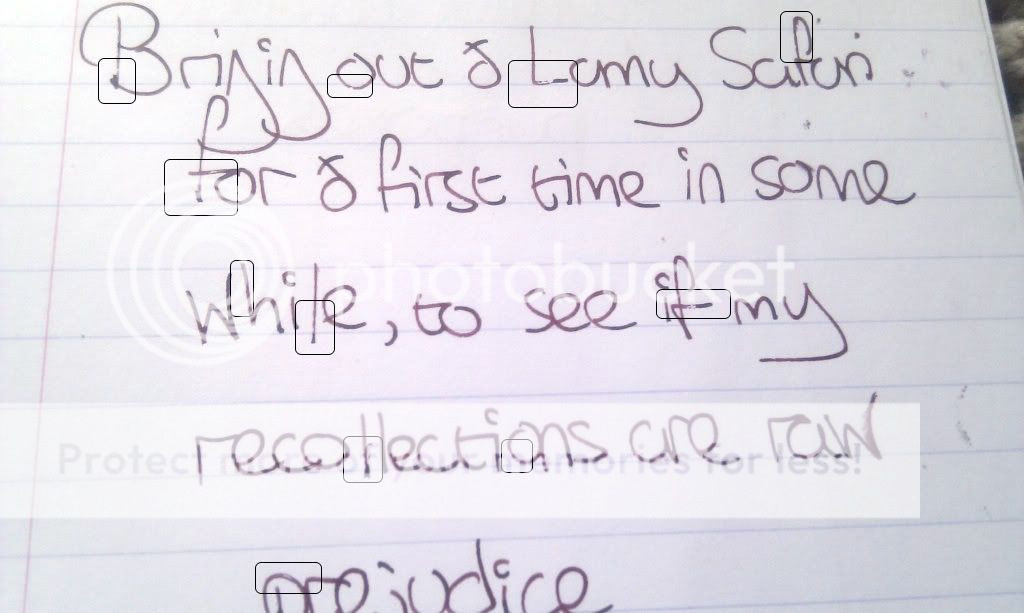 Bringing out ð Lamy Safari
for ð first time in some
while, to see if my
photobucket
recollections are raw
Protect more of your memories for less!
prejudice